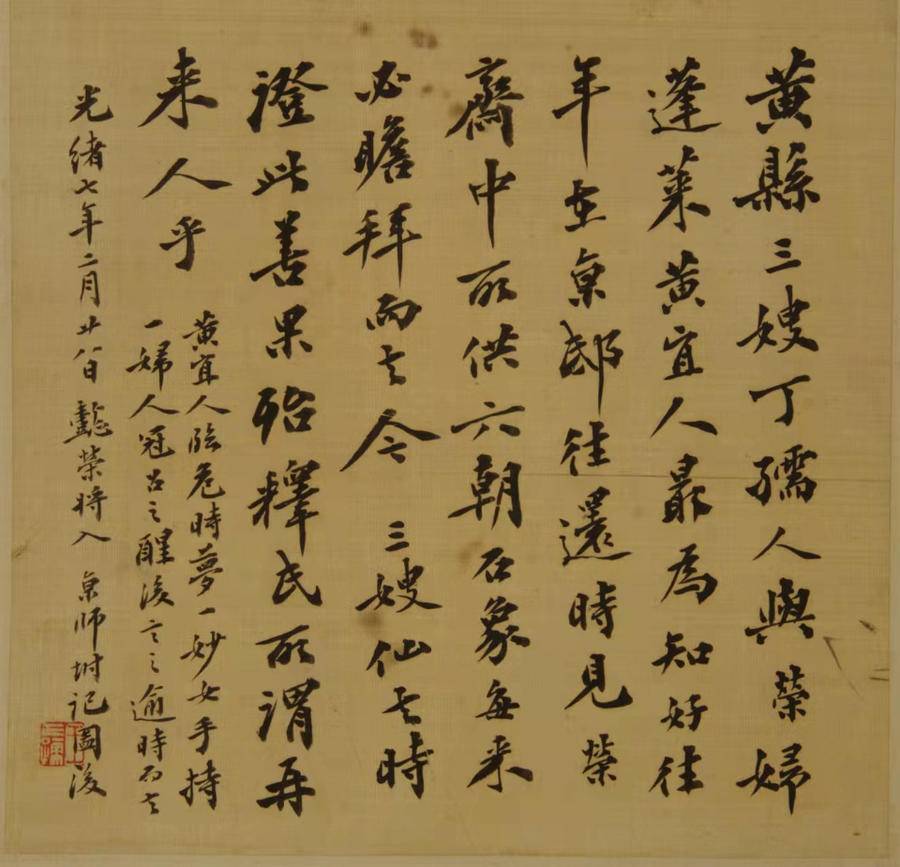 黃縣三嫂丁孺人與榮婦
蓬萊黃宜人最為知好往
年在京邸往還時見榮
齋中所供六朝石象每来
必瞻拜而去今三嫂仙去時
證此善果殆釋氏所謂再
来人乎
黃宜人臨危時夢一妙女手持
一婦人冠召之醒後言之逾時而去
光緒七年二月廿八日懿榮將入京師坿記圖後